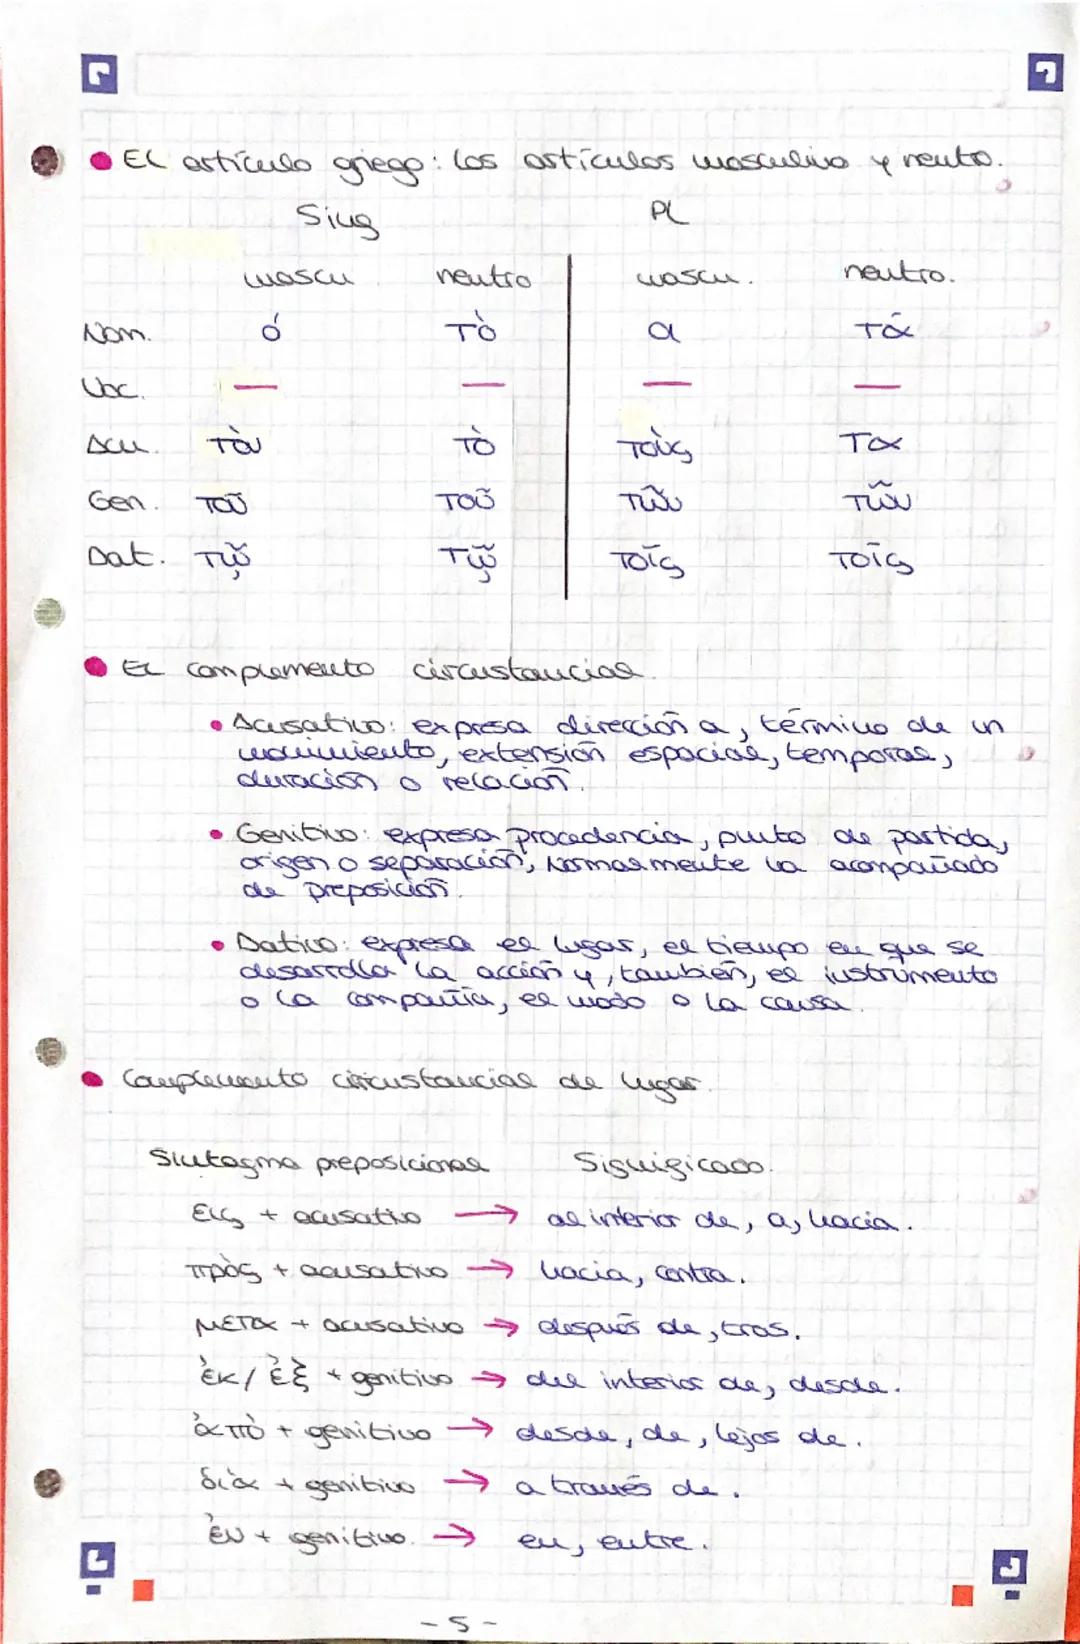 El artículo griego: los artículos masculino y neutro.
Sing PL
mascu neutro mascu. neutro.
Nom. ό τὸ α τά
Voc. — — — —
Acu. τὸν τὸ τοὺς τα
Gen. τοῦ τοῦ τῶν τῶν
Dat. τῷ τῷ τοῖς τοῖς
El complemento circustancial
Acusativo: expresa dirección a, término de un
movimiento, extensión espacial, temporal,
duración o relación.
Genitivo: expresa procedencia, punto de partida,
origen o separación, Normalmente va acompañado
de preposición.
Dativo: expresa el lugar, el tiempo en que se
desarrolla la acción y, también, el instrumento
o la compañía, el modo o la causa.
Complemento circustancial de lugar.
Sintagma preposicional Significado.
εις + acusativo → al interior de, a, hacia.
πρὸς + acusativo → hacia, contra.
μετα + acusativo → después de, tras.
ἐκ / ἐξ + genitivo → del interior de, desde.
ἀπὸ + genitivo → desde, de, lejos de.
διὰ + genitivo → a través de.
ἐν + genitivo. → en, entre.
- 5 -